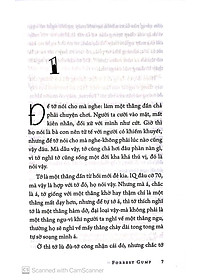 1
Để tớ nói cho mà nghe: làm một thằng đần chả
phải chuyện chơi. Người ta cười vào mũi, mất
kiên nhẫn, đối xử với mình như cứt. Giờ thì
họ nói là bà con nên tử tế với người có khiếm khuyết,
nhưng để tớ nói cho mà nghe-không phải lúc nào cũng
vậy đâu. Mà dẫu vậy, tớ cũng chả hơi đâu phàn nàn gì,
vì tớ nghĩ tớ cũng sống một đời kha khá thú vị, đó là
nói vậy.
Tớ là một thằng đần từ hồi mới đẻ kia. IQ đâu cỡ 70,
mà vậy là hợp với tớ, họ nói vậy. Nhưng mà á, chắc là
tớ giống với một thằng khờ hay thậm chí là một
thằng mất dạy hơn, nhưng để tự tớ á, thì tớ thích nghĩ tớ
là một thằng hâm dở, đại loại vậy-mà không phải là
một thằng ngu-vì khi người ta nghĩ về một thằng ngu,
thường họ sẽ nghĩ về mấy thằng chảy dãi tong tong mà
tự sờ soạng mình á.
Ờ thì tớ lù đù-tớ công nhận cái đó, nhưng chắc tớ
FORREST GUMP 7
CS Scanned with CamScanner